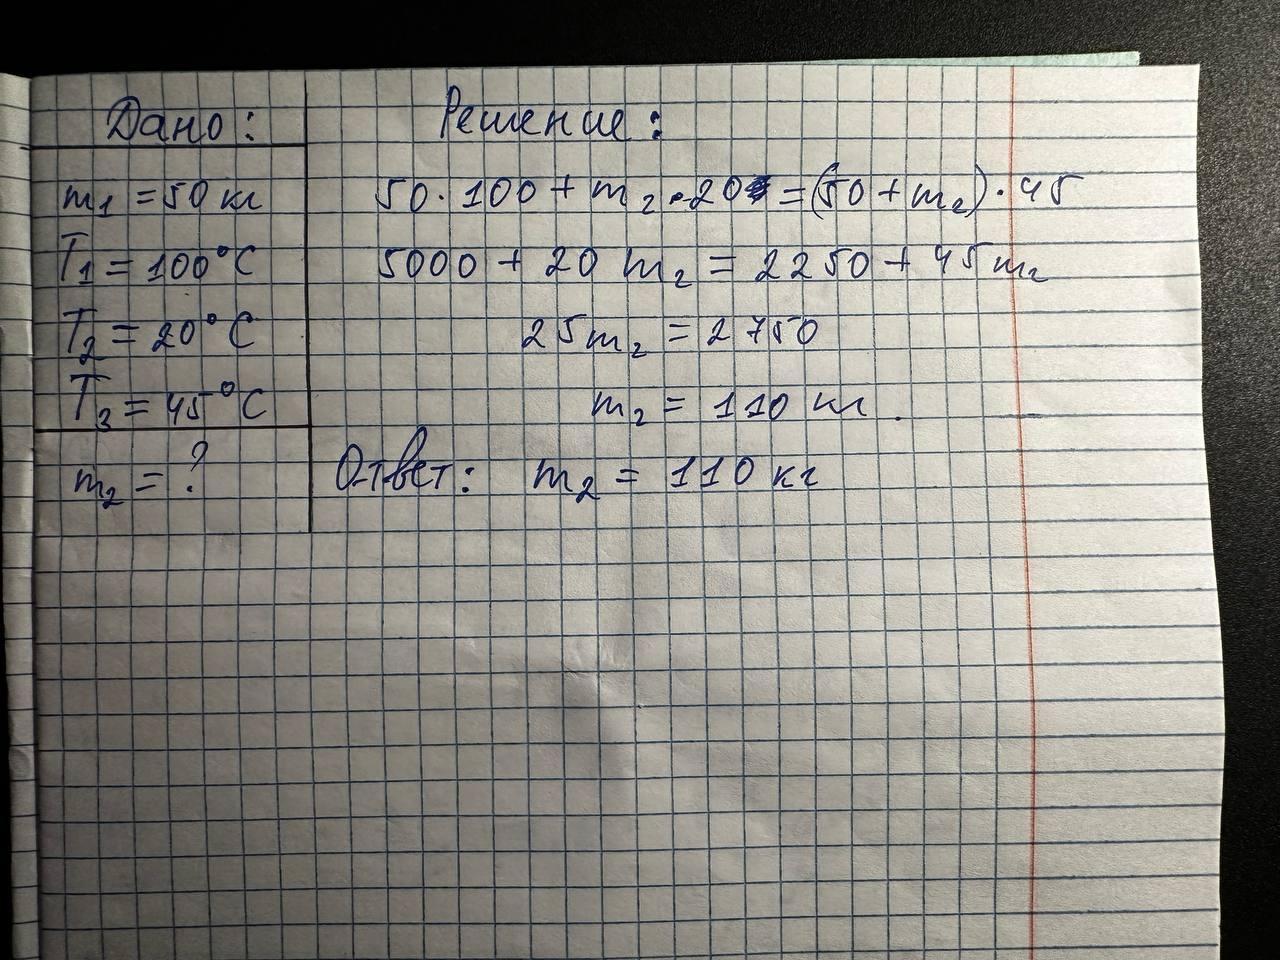 Дано:
m₁ = 50 кг
T₁ = 100°C
T₂ = 20°C
T₃ = 45°C
m₂ = ?
Решение:
50 · 100 + m₂ · 20 = (50 + m₂) · 45
5000 + 20 m₂ = 2250 + 45 m₂
25 m₂ = 2750
m₂ = 110 кг.
Ответ: m₂ = 110 кг